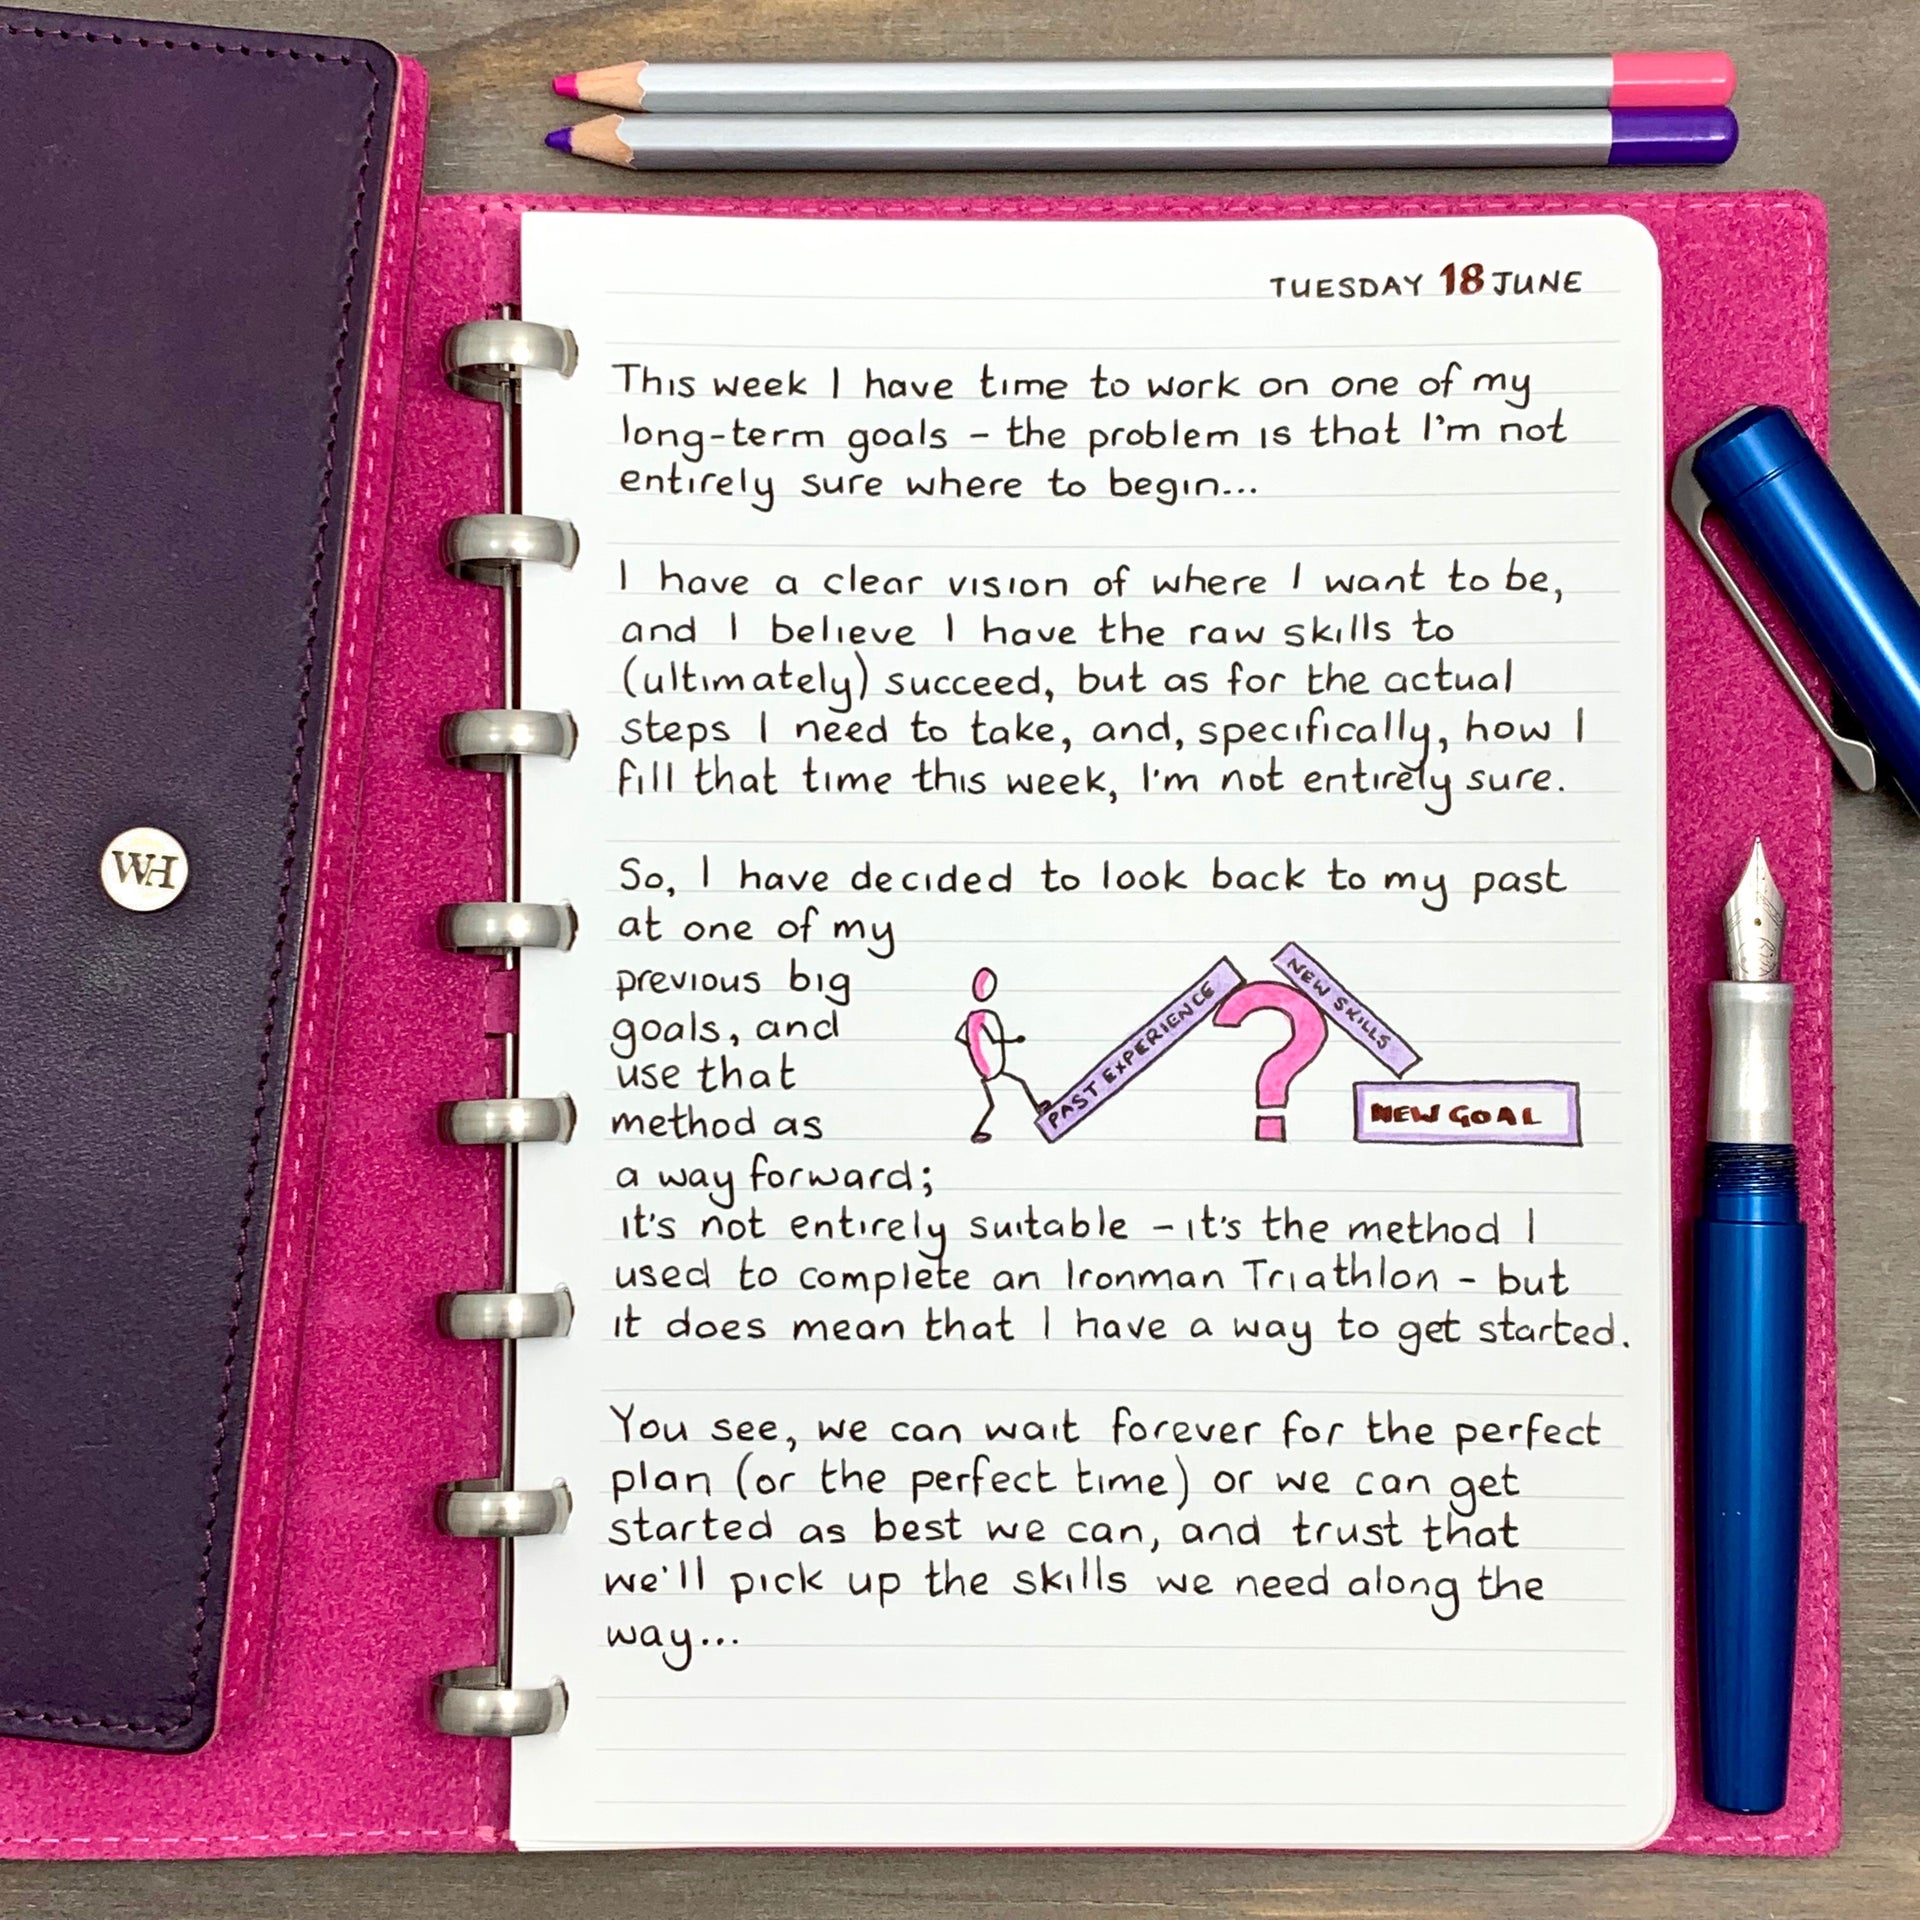 WH
TUESDAY 18 JUNE
This week I have time to work on one of my
long-term goals – the problem is that I'm not
entirely sure where to begin...
I have a clear vision of where I want to be,
and I believe I have the raw skills to
(ultimately) succeed, but as for the actual
steps I need to take, and, specifically, how I
fill that time this week, I'm not entirely sure.
So, I have decided to look back to my past
at one of my
previous big
goals, and
use that
method as
a way forward;
PAST EXPERIENCE
NEW SKILLS
NEW GOAL
it's not entirely suitable – it's the method I
used to complete an Ironman Triathlon – but
it does mean that I have a way to get started.
You see, we can wait forever for the perfect
plan (or the perfect time) or we can get
started as best we can, and trust that
we'll pick up the skills we need along the
way...